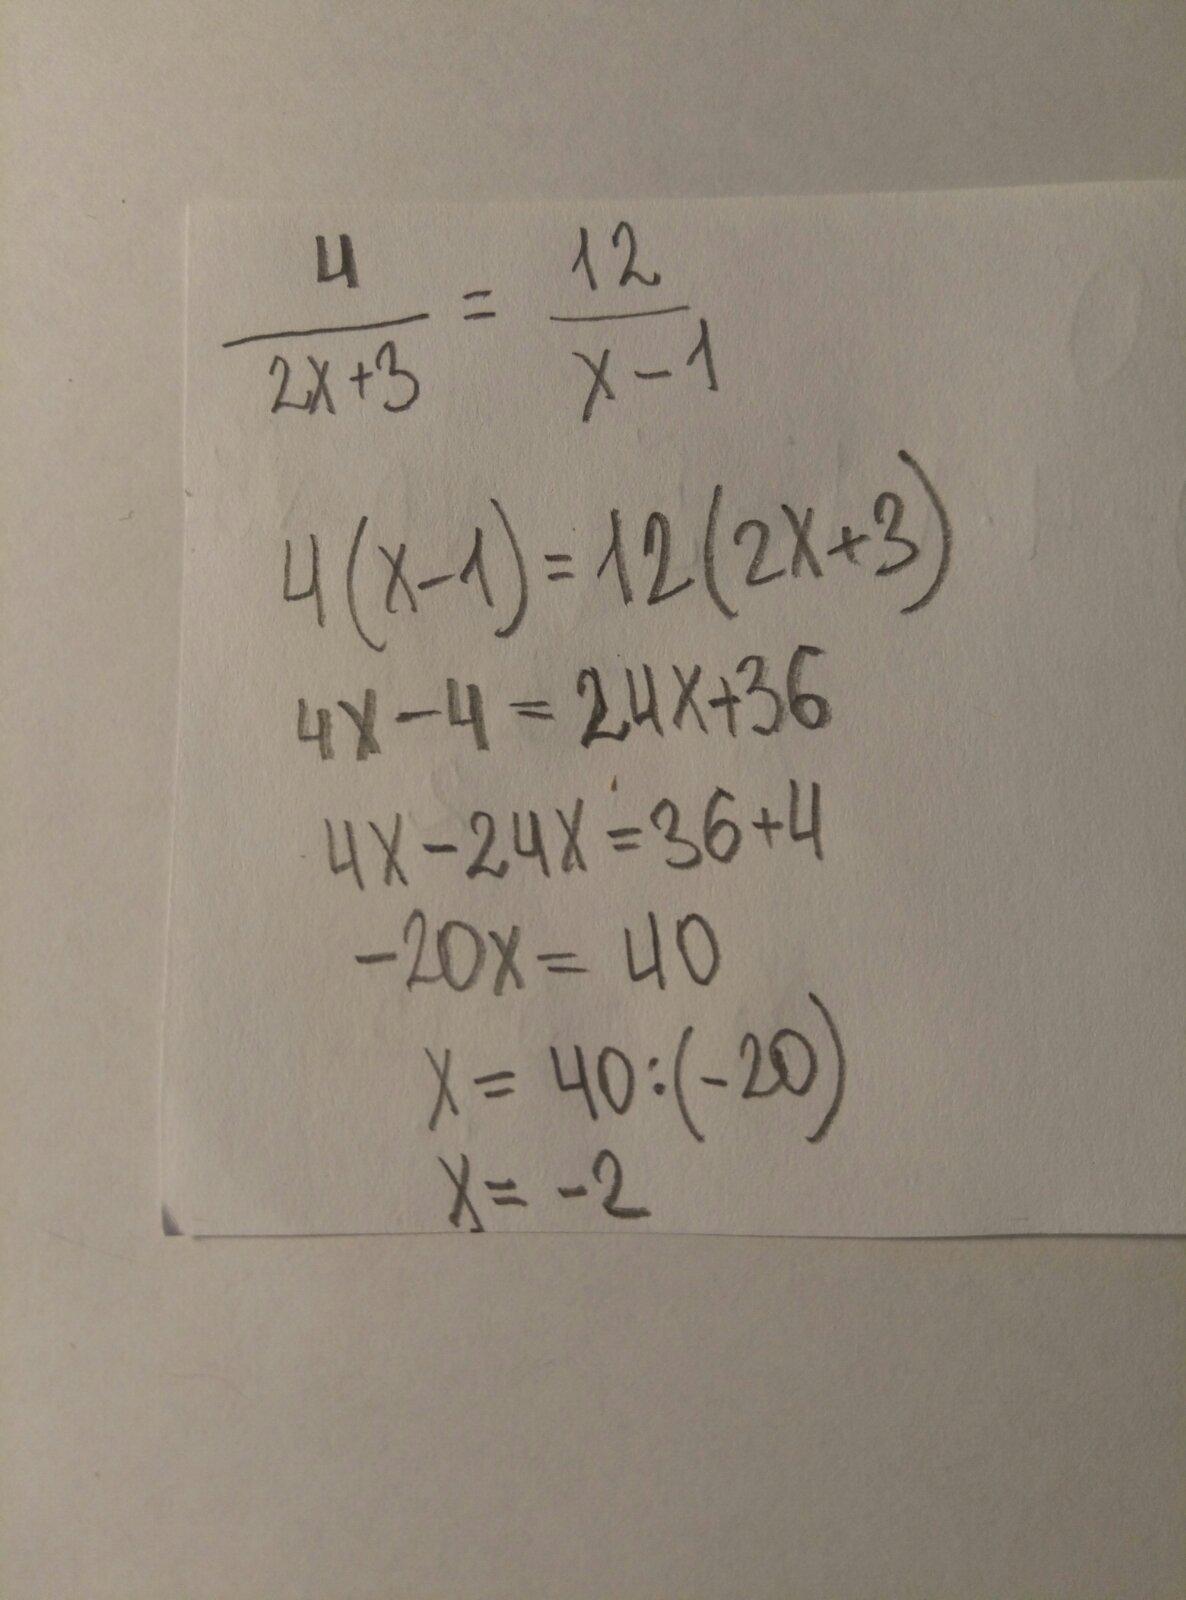 4/(2x+3) = 12/(x-1)
4(x-1)=12(2x+3)
4x-4=24x+36
4x-24x=36+4
-20x=40
x=40:(-20)
x=-2